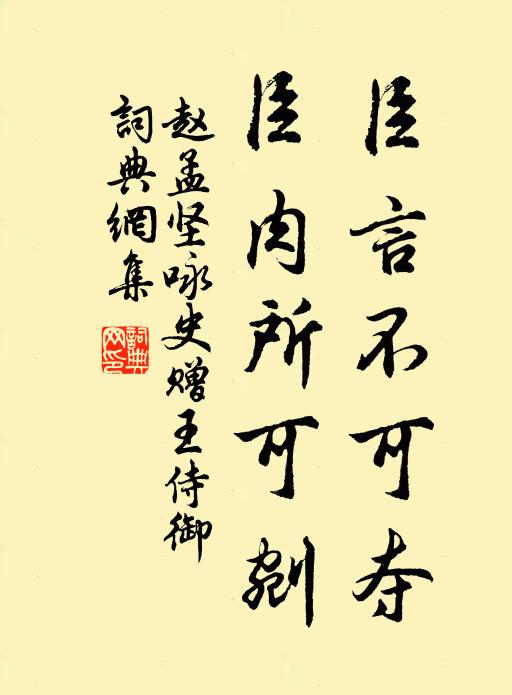 臣言不可夺
臣肉所可剜
赵孟坚咏史赠王侍御
詞典網集
詞典网印